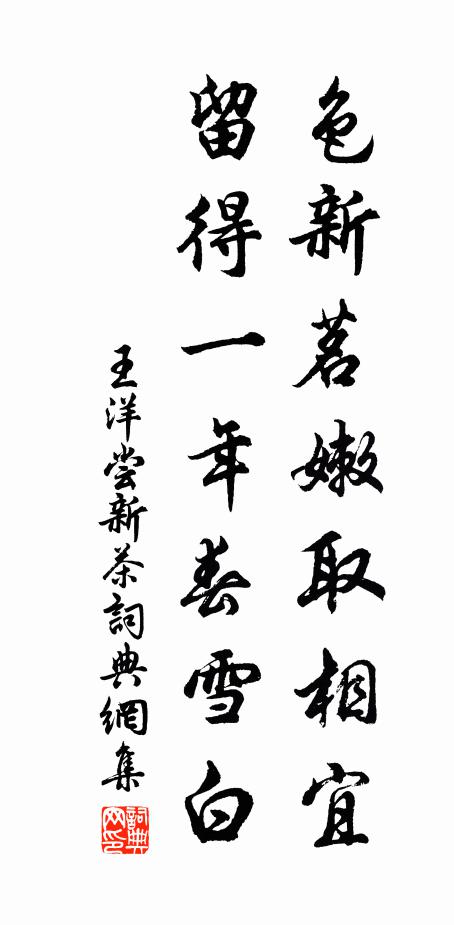 色新茗嫩取相宜
留得一年春雪白
王洋尝新茶詞典網集
詞典网印